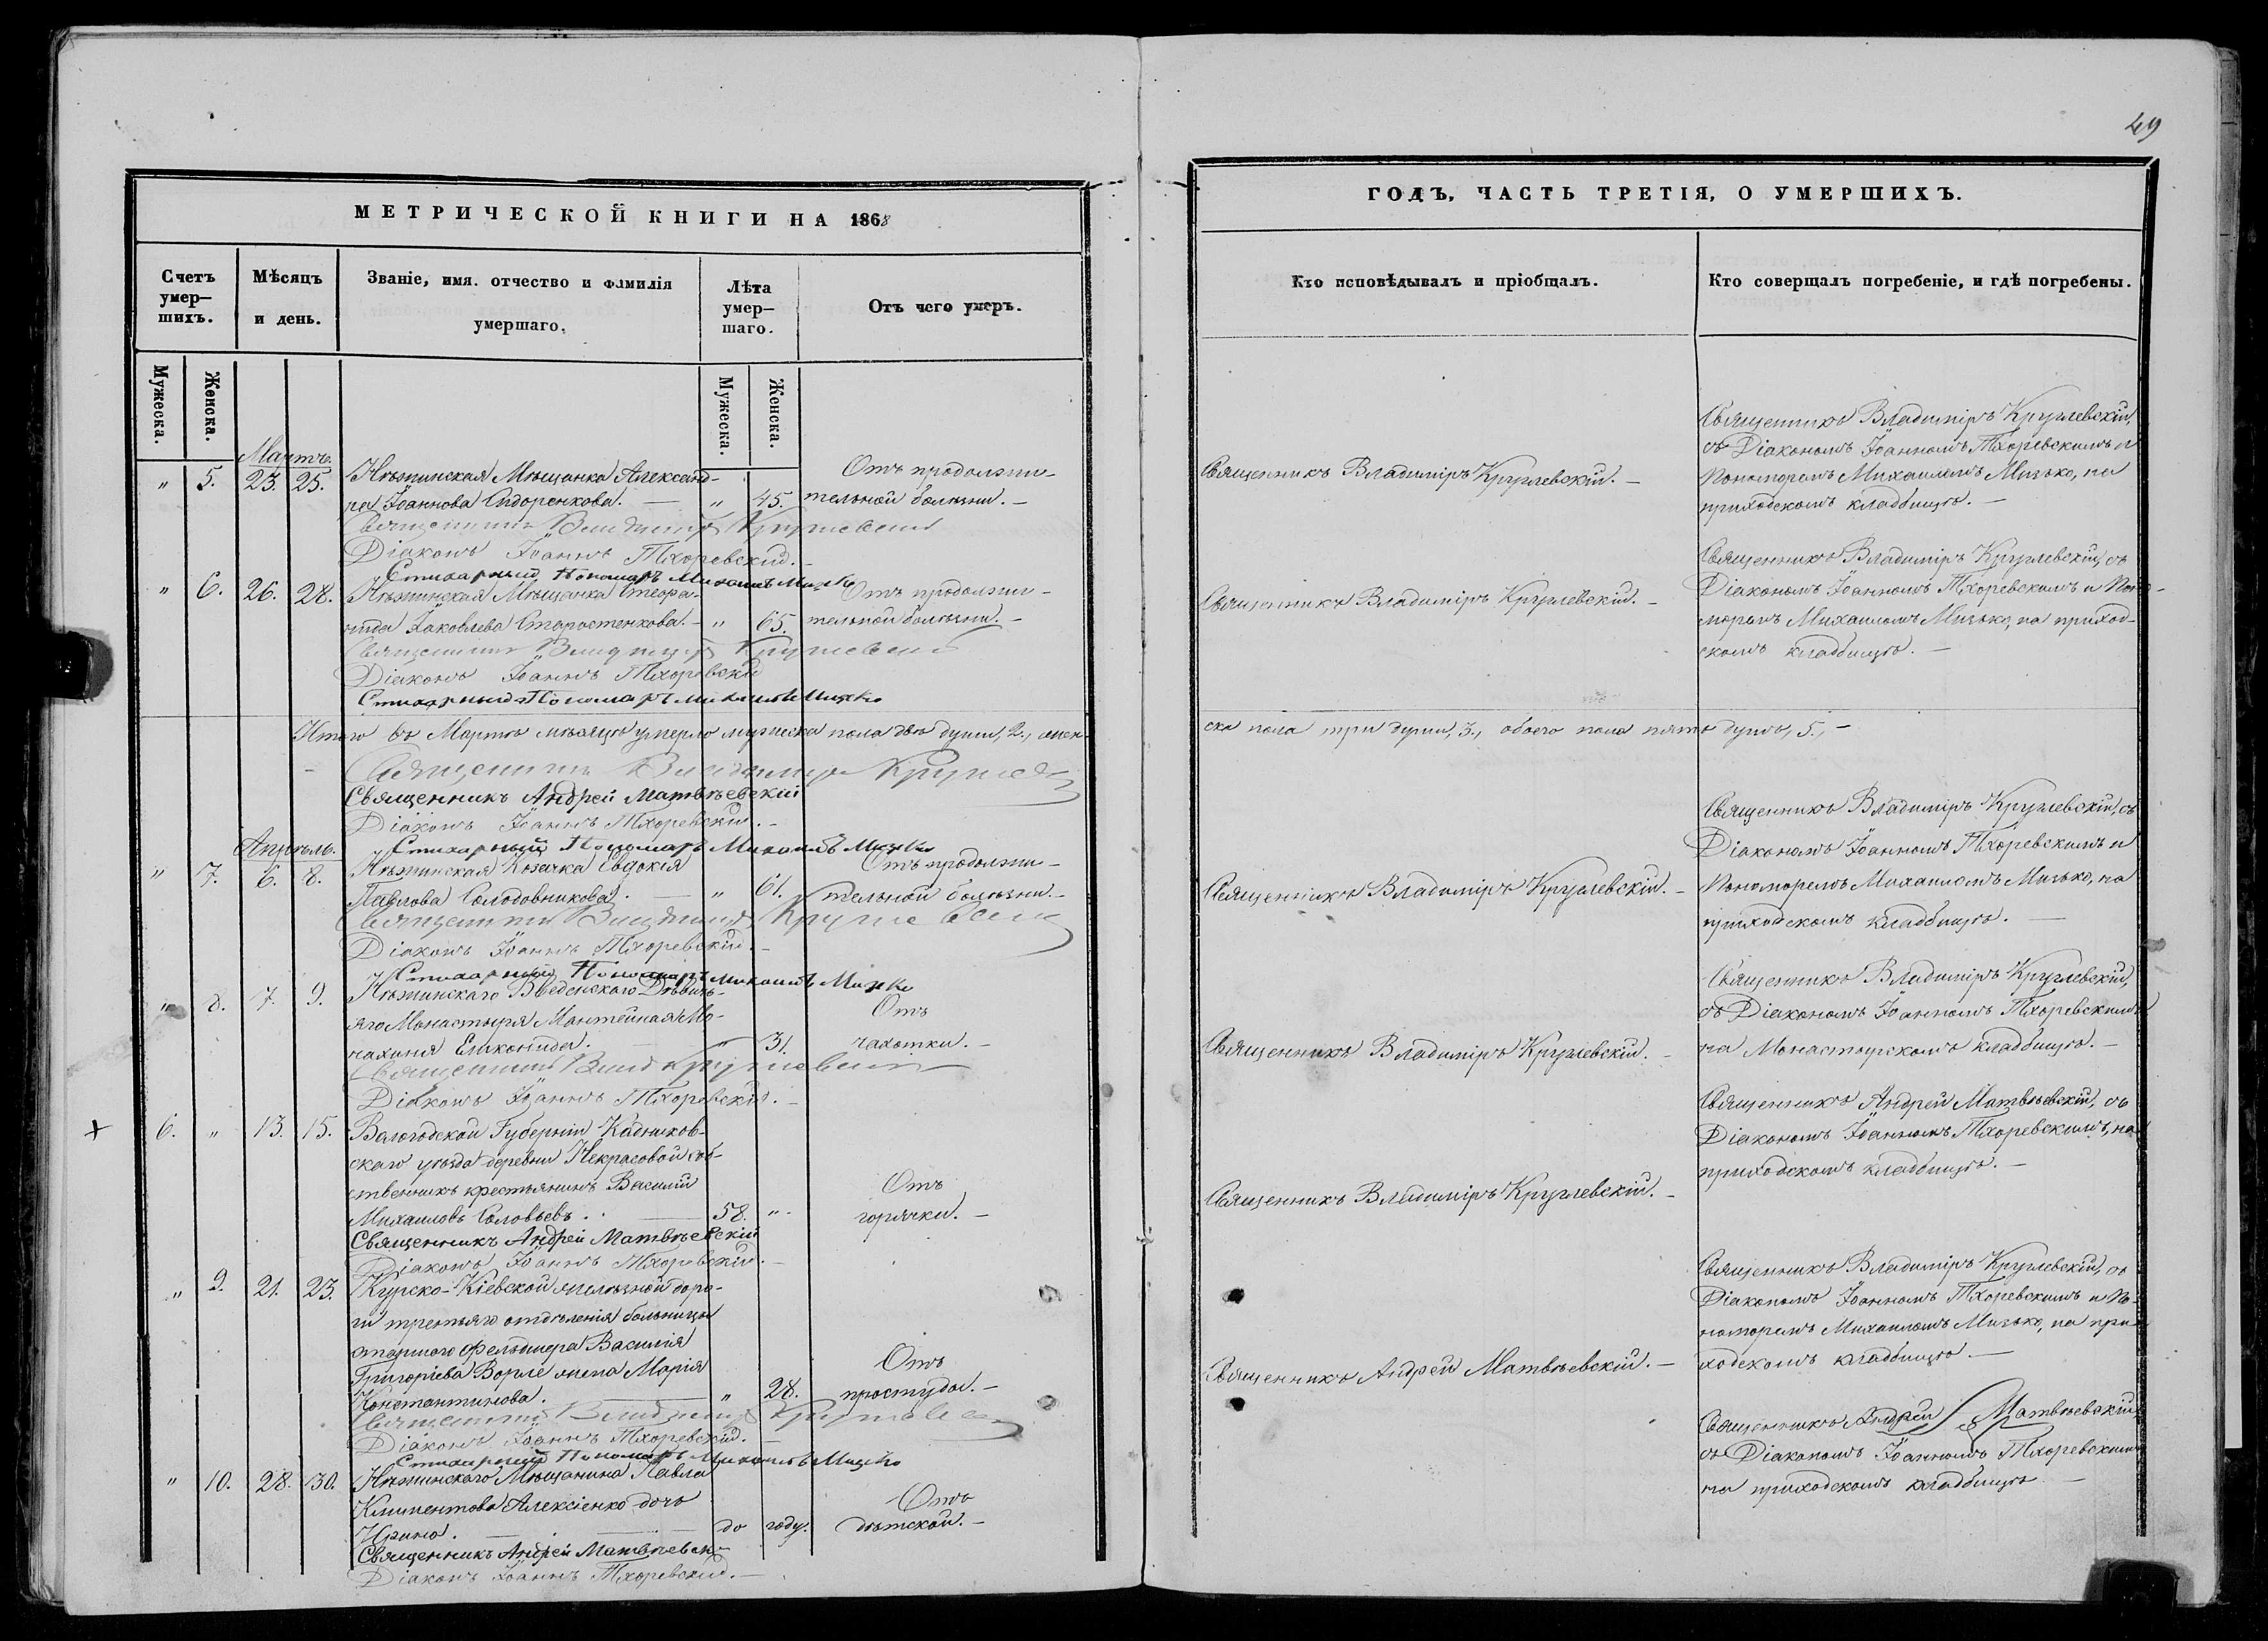 49
МЕТРИЧЕСКОЙ КНИГИ НА 1868
ГОДЪ, ЧАСТЬ ТРЕТІЯ, О УМЕРШИХЪ.
Счетъ умер–шихъ.
Мѣсяцъ и день.
Званіе, имя. отчество и фамилія умершаго.
Лѣта умер–шаго.
Отъ чего умеръ.
Кто исповѣдывалъ и пріобщалъ.
Кто соверщалъ погребеніе, и гдѣ погребены.
Мужеска.
Женска.
Мужеска.
Женска.
Мартъ.
" 5. 23. 25. Нѣжинская Мѣщанка Александ-
ра Іоаннова Сидоренкова. — " 45.
Отъ продолжи-
тельной болѣзни. —
Священникъ Владиміръ Круглевскій. —
Священникъ Владиміръ Круглевскій,
съ Діакономъ Іоанномъ Тхоревскимъ и
Пономаремъ Михаиломъ Мизько, на
приходскомъ кладбищѣ. —
Священникъ Владиміръ Круглевскій
Діаконъ Іоаннъ Тхоревскій. —
Стихарный Пономарь Михаилъ Мизько
" 6. 26. 28. Нѣжинская Мѣщанка Стефа-
нида Іаковлева Старостенкова. — " 65.
Отъ продолжи-
тельной болѣзни. —
Священникъ Владиміръ Круглевскій. —
Священникъ Владиміръ Круглевскій, съ
Діакономъ Іоанномъ Тхоревскимъ и Поно-
маремъ Михаиломъ Мизько, на приход-
скомъ кладбищѣ. —
Священникъ Владиміръ Круглевскій
Діаконъ Іоаннъ Тхоревскій
Стихарный Пономарь Михаилъ Мизько
Итого въ Мартѣ мѣсяцѣ умерло мужеска пола двѣ души, 2., жен-
ска пола три души, 3., обоего пола пять душъ, 5., —
Священникъ Владиміръ Круглев
Священникъ Андрей Матвѣевскій
Діаконъ Іоаннъ Тхоревскій. —
Стихарный Пономарь Михаилъ Мизько
Апрѣль.
" 7. 6. 8. Нѣжинская Козачка Евдокія
Павлова Солодовникова. — " 61.
Отъ продолжи-
тельной болѣзни. —
Священникъ Владиміръ Круглевскій. —
Священникъ Владиміръ Круглевскій, съ
Діакономъ Іоанномъ Тхоревскимъ и
Пономаремъ Михаиломъ Мизько, на
приходскомъ кладбищѣ. —
Священникъ Владиміръ Круглевскій
Діаконъ Іоаннъ Тхоревскій. —
Стихарный Пономарь Михаилъ Мизько
" 8. 7. 9. Нѣжинскаго Введенскаго Дѣвичь-
яго Монастыря Мантейная Мо-
нахиня — " 31.
Отъ
чахотки. —
Священникъ Владиміръ Круглевскій. —
Священникъ Владиміръ Круглевскій,
съ Діакономъ Іоанномъ Тхоревскимъ
на Монастырскомъ кладбищѣ. —
Священникъ Влад Круглевскій
Діаконъ Іоаннъ Тхоревскій. —
+ 6. " 13. 15. Вологодской Губерніи Кадников-
скаго уѣзда деревни Некрасовой соб-
ственникъ крестьянинъ Василій
Михаиловъ Соловьевъ. — 58. "
Отъ
горячки. —
Священникъ Владиміръ Круглевскій. —
Священникъ Андрей Матвѣевскій, съ
Діакономъ Іоанномъ Тхоревскимъ, на
приходскомъ кладбищѣ. —
Священникъ Андрей Матвѣевскій
Діаконъ Іоаннъ Тхоревскій. —
" 9. 21. 23. Курско-Кіевской желѣзной доро-
ги третьяго отдѣленія больницы
старшаго Фельдшера Василія
Григоріева Ворле жена Марія
Константинова. — " 28.
Отъ
простуды. —
Священникъ Андрей Матвѣевскій. —
Священникъ Владиміръ Круглевскій, съ
Діакономъ Іоанномъ Тхоревскимъ и По-
номаремъ Михаиломъ Мизько, на при-
ходскомъ кладбищѣ. —
Священникъ Владиміръ Круглевс
Діаконъ Іоаннъ Тхоревскій. —
Стихарный Пономарь Михаилъ Мизько
" 10. 28. 30. Нѣжинскаго Мѣщанина Павла
Климентова Алексіенко дочь
Ирина. — до году.
Отъ
дѣтской. —
Священникъ Андрей Матвѣевскій
съ Діакономъ Іоанномъ Тхоревскимъ
на приходскомъ кладбищѣ —
Священникъ Андрей Матвѣевск
Діаконъ Іоаннъ Тхоревскій. —